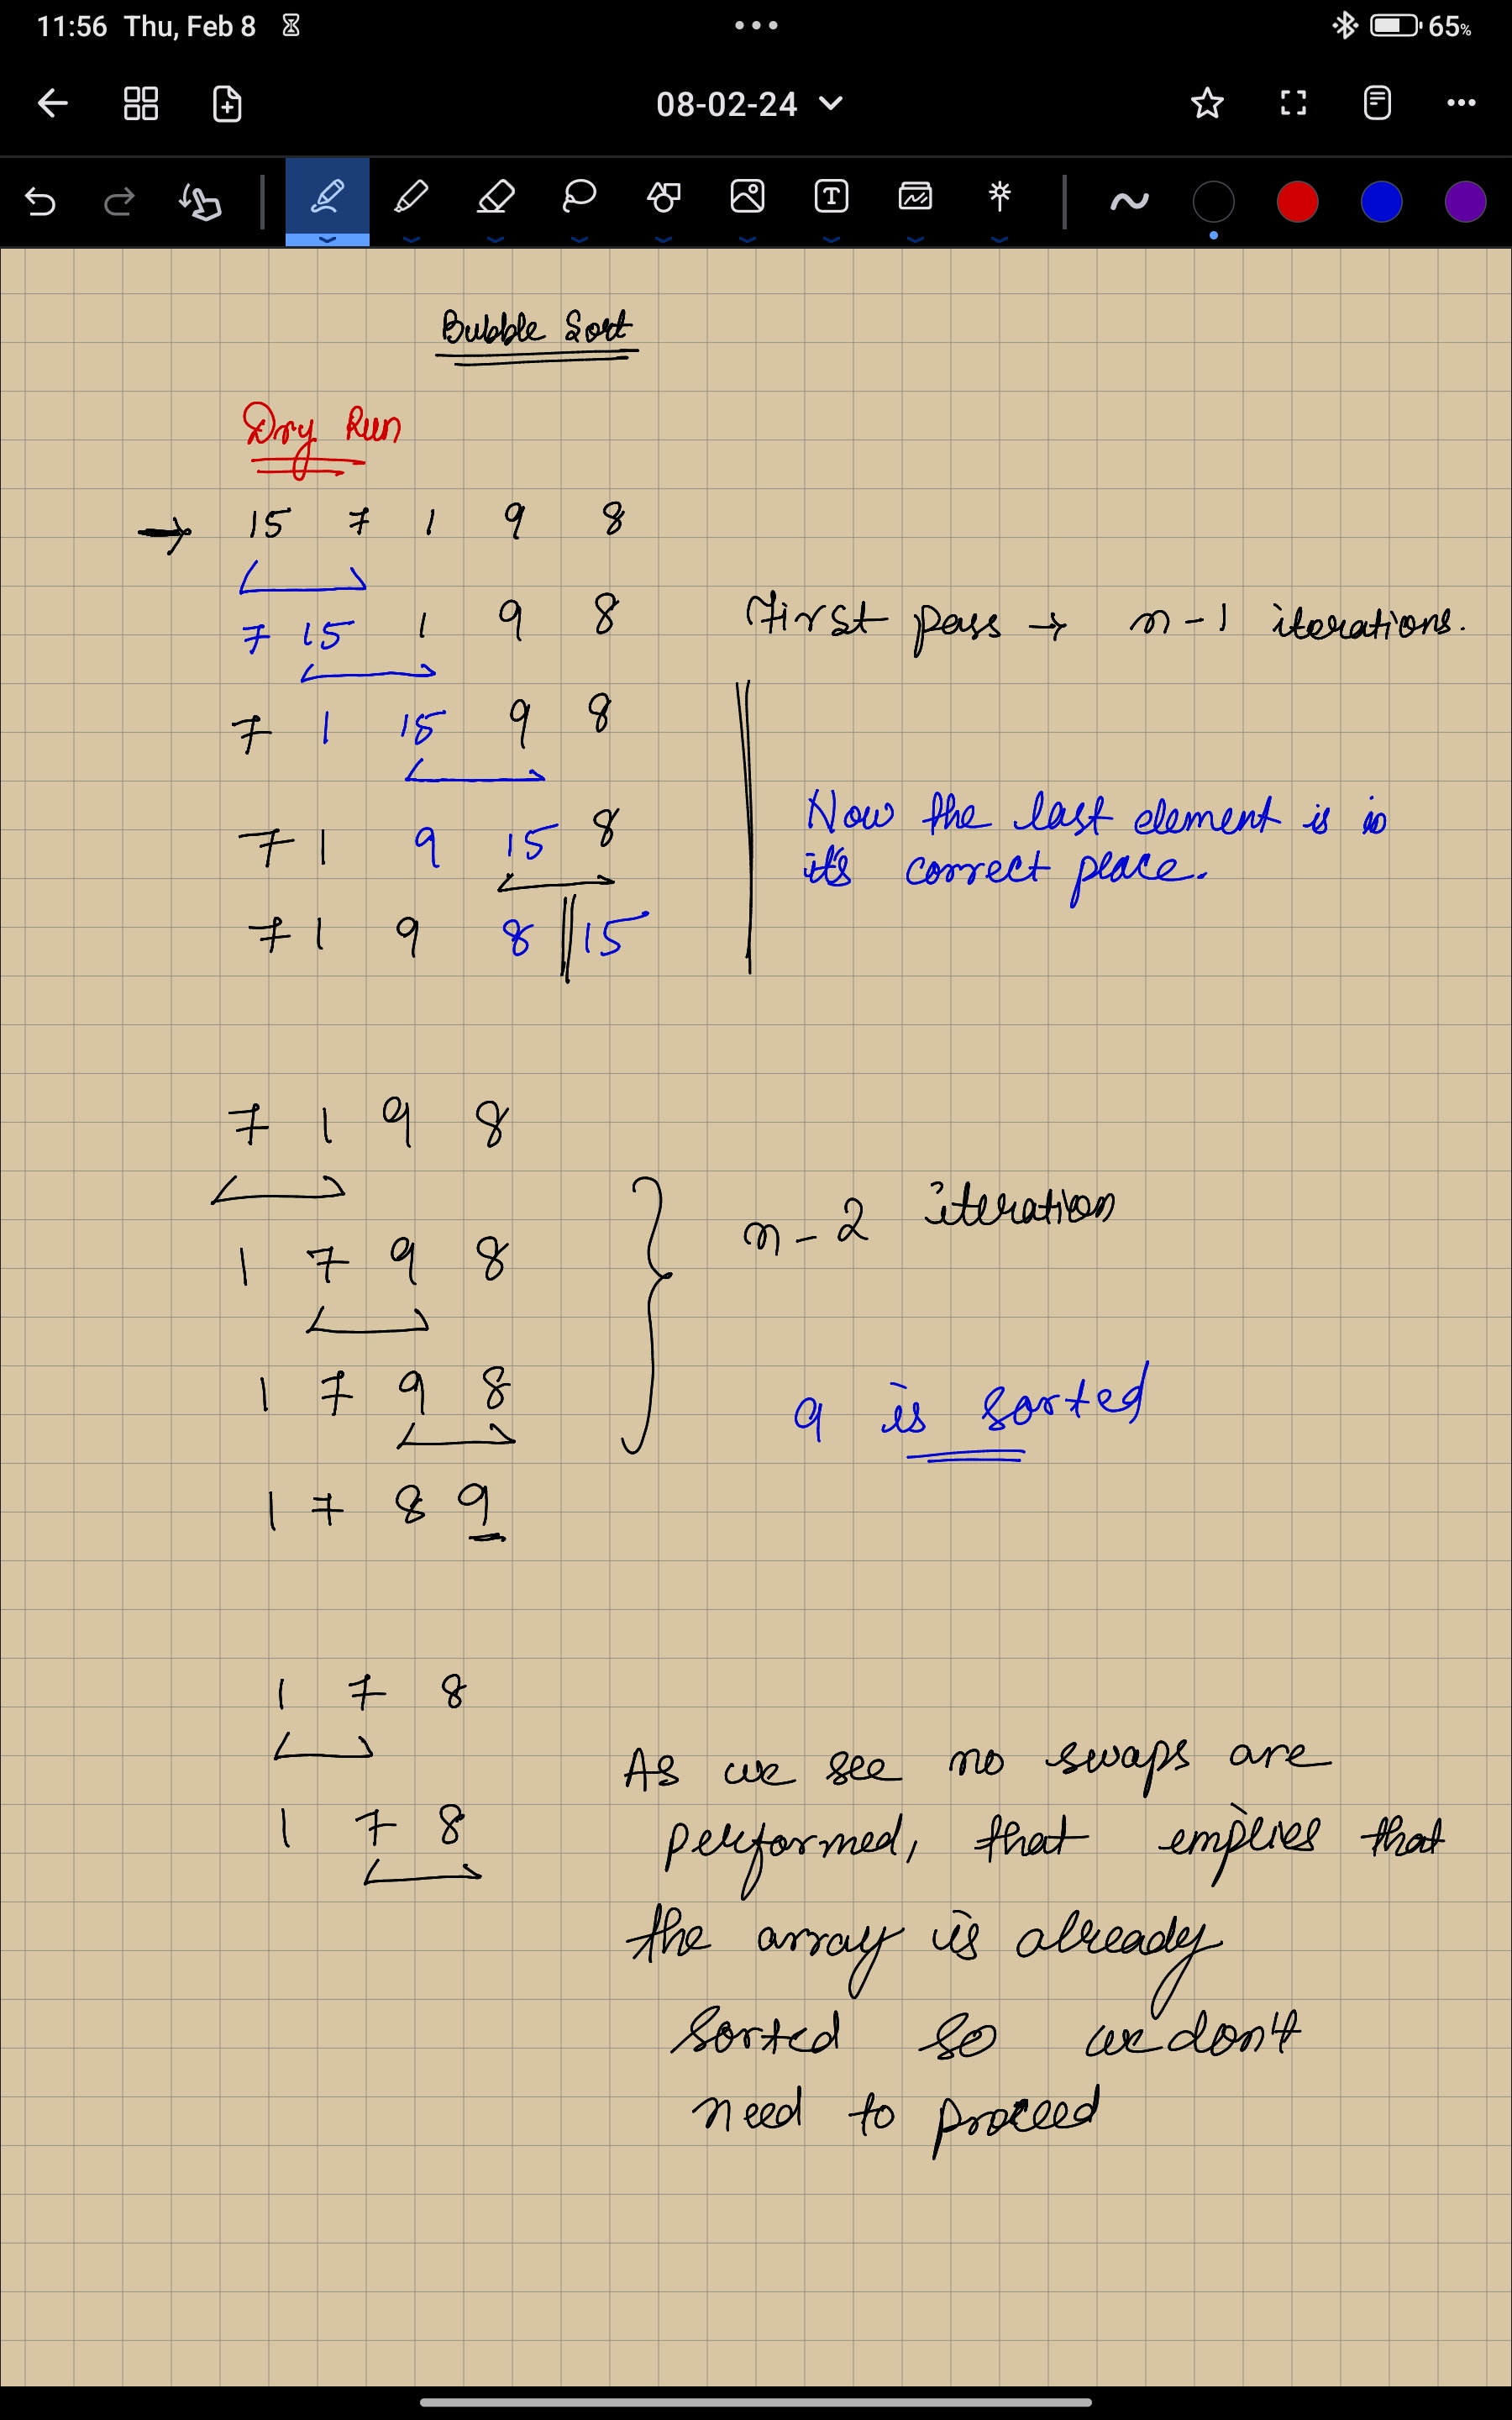 11:56 Thu, Feb 8
65%
08-02-24
Bubble Sort
Dry Run
→ 15 7 1 9 8
7 15 1 9 8
First pass → n-1 iterations.
7 1 15 9 8
7 1 9 15 8
Now the last element is in
it's correct place.
7 1 9 8 || 15
7 1 9 8
1 7 9 8
n-2 iteration
1 7 9 8
9 is sorted
1 7 8 9
1 7 8
1 7 8
As we see no swaps are
performed, that implies that
the array is already
sorted so we don't
need to proceed